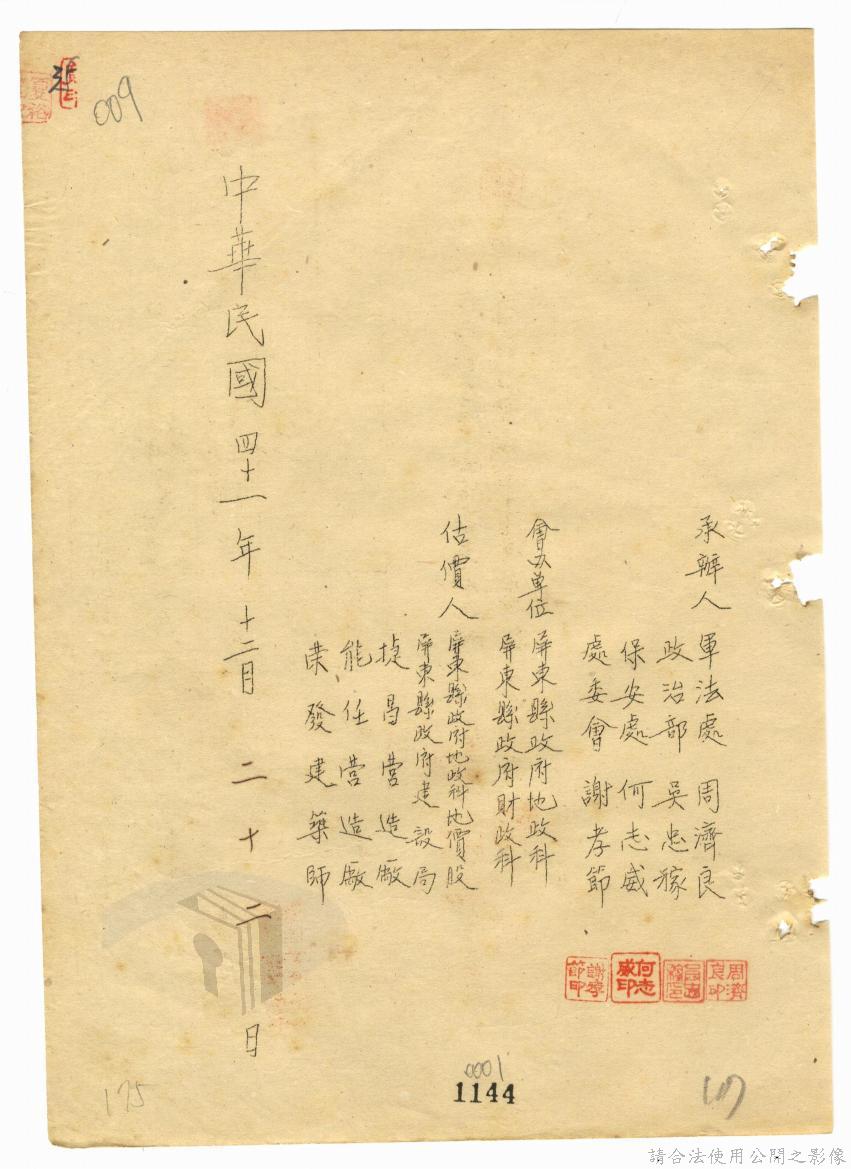 承辦人 軍法處 周濟良
政治部 吳忠稼
保安處 何志威
處委會 謝孝節
會办單位 屏東縣政府地政科
屏東縣政府財政科
估價人 屏東縣政府地政科地價股
屏東縣政府建設局
捷昌营造廠
能任营造廠
荣發建築師
中華民國四十一年十二月二十二日
周濟良印
何志威印
謝孝節印
009
175
0001
1144
請合法使用公開之影像